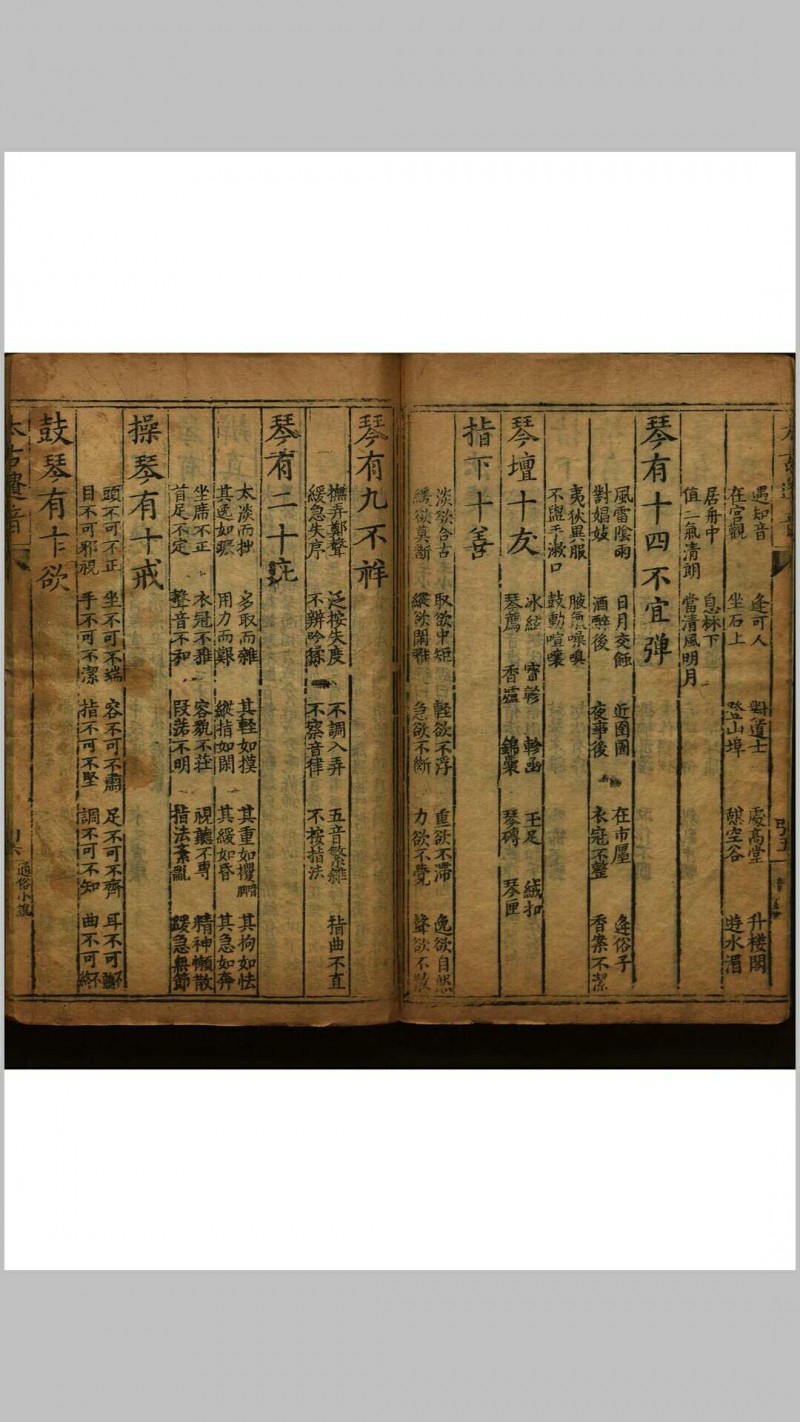 遇知音 逢可人 對道士 處高堂 升楼閣
在宫觀 坐石上 登山埠 憇空谷 遊水湄
居舟中 息林下
值二氣清朗 當清風明月
琴有十四不宜弹
風雷陰雨 日月交蝕 近圊圂 在市㕓 逢俗子
對娼妓 酒醉後 夜事後 衣冠不整 香案不潔
夷狄異服 腋氣噪嗅
不盥手漱口 鼓動喧嚷
琴壇十友
冰絃 寳軫 軫函 玉足 絨扣
琴薦 香爐 錦囊 琴磚 琴匣
指下十善
淡欲合古 取欲中矩 輕欲不浮 重欲不滯 逸欲自然
緩欲莫斷 縱欲閑雅 急欲不斷 力欲不覺 聲欲不散
琴有九不祥
撫弄鄭聲 泛按失度 不調入弄 五音繁雜 指曲不直
緩急失序 不辨吟猱 不察音律 不按指法
琴有二十疵
太淡而拙 多取而雜 其輕如摸 其重如攫 其拘如怯
其逸如 用力而艱 縱指如閑 其緩如昏 其急如奔
坐席不正 衣冠不雅 容貌不莊 視聽不専 精神懶散
首足不定 聲音不和 叚落不明 指法紊亂 緩急無節
操琴有十戒
頭不可不正 坐不可不端 容不可不肅 足不可不齊 耳不可不聽
目不可邪視 手不可不潔 指不可不堅 調不可不知 曲不可不終
鼓琴有十欲
太古遺音
通俗小說